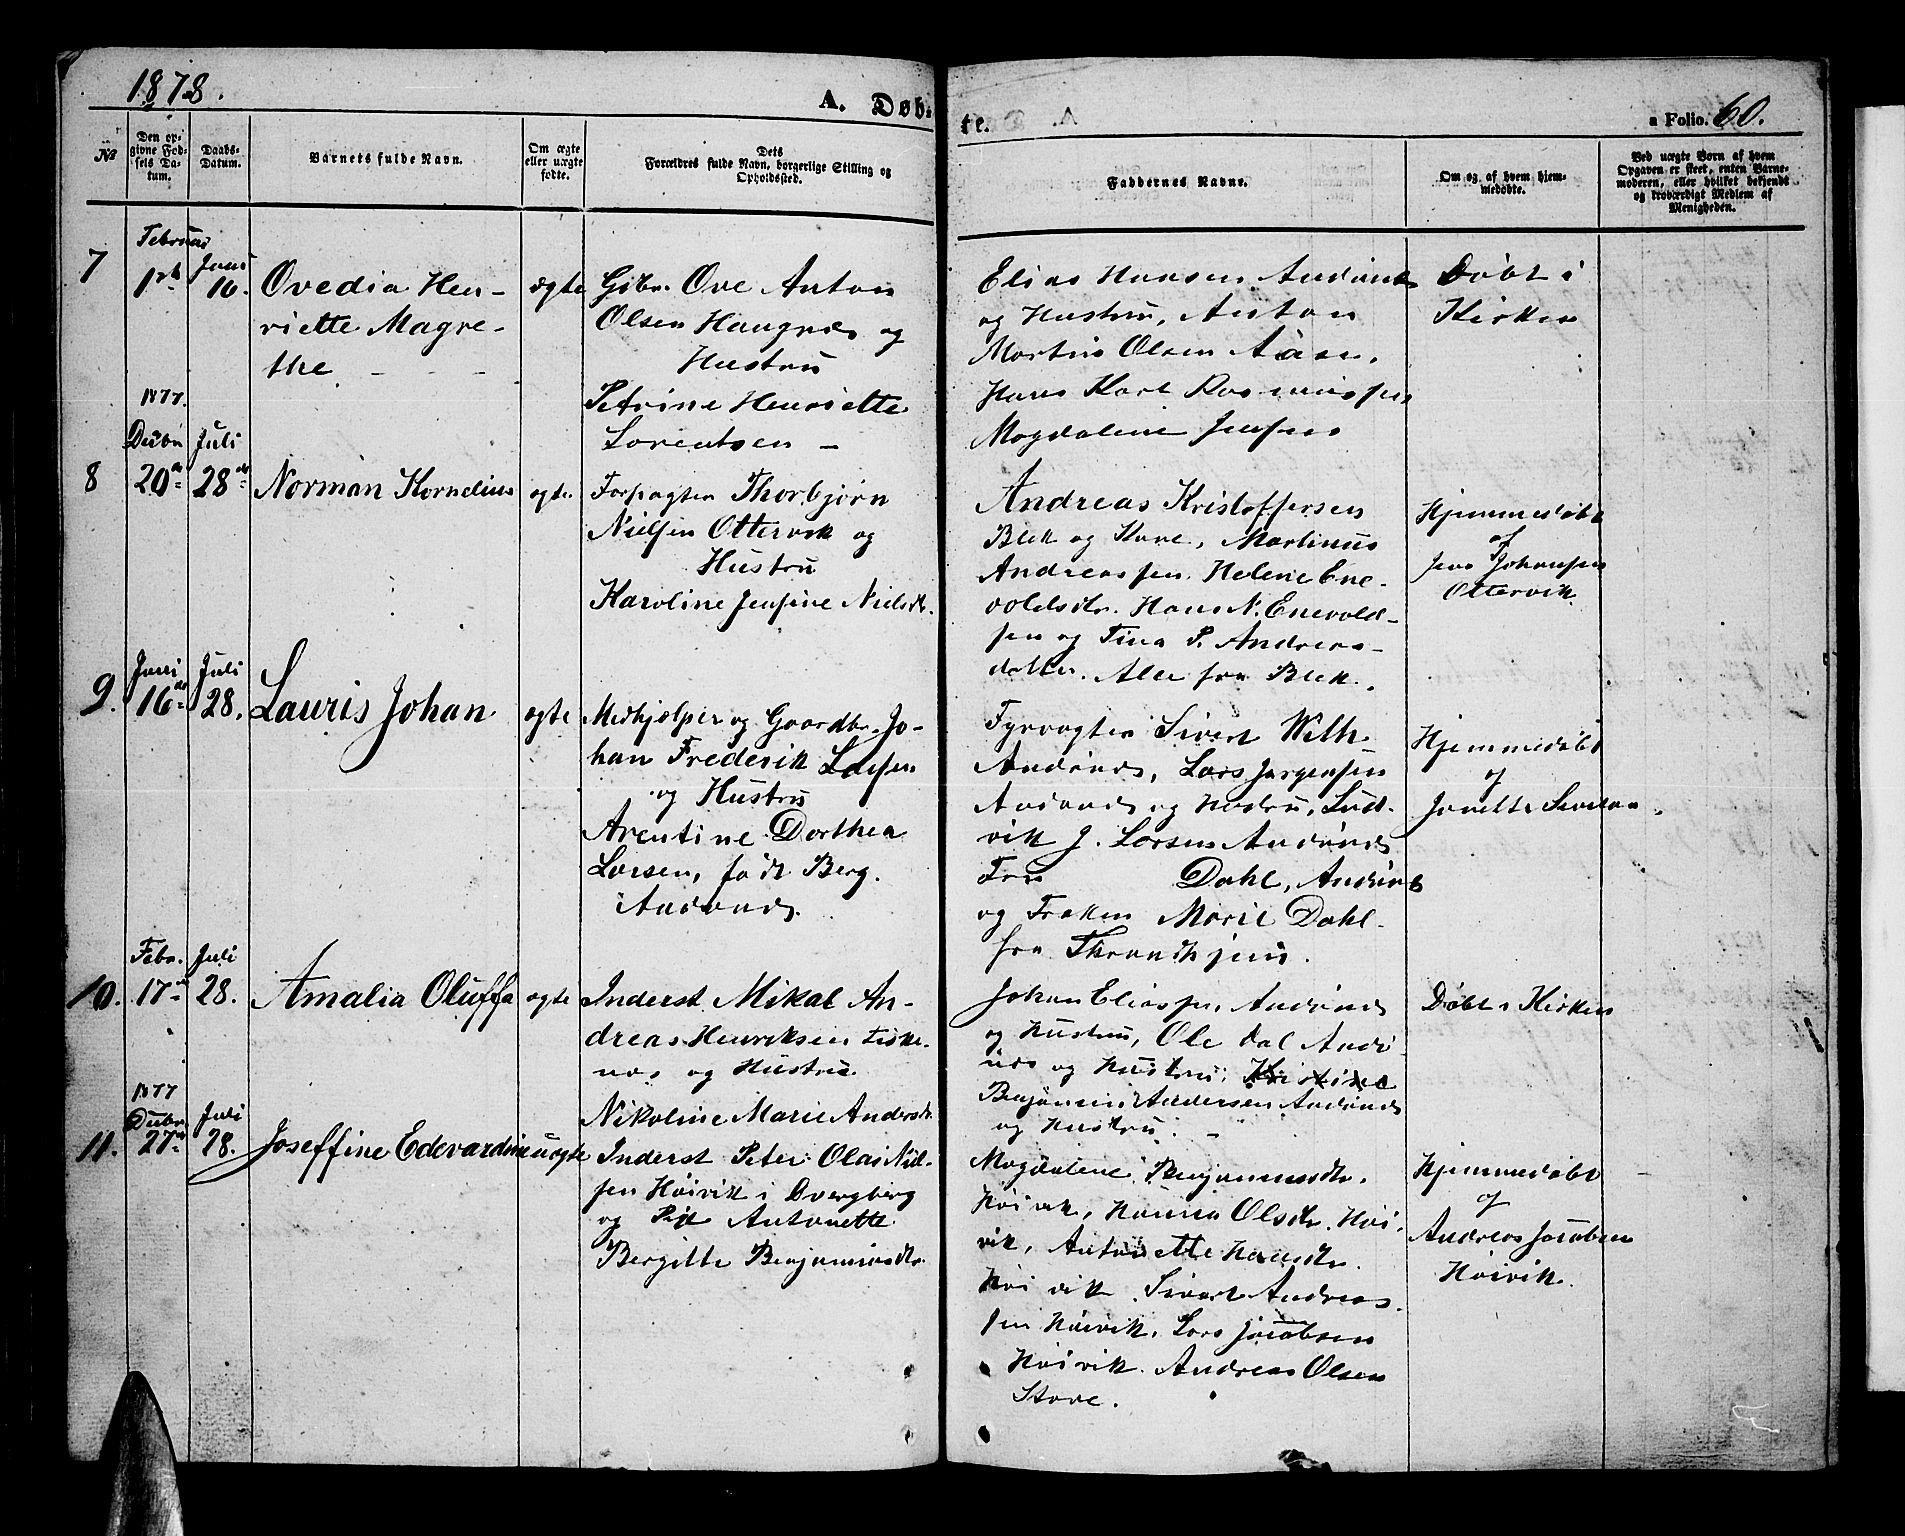 1878.
A. Døb-
te.
a Folio. 60.
No
Den op-
givne Fød-
sels Da-
tum.
Daabs-
Datum.
Barnets fulde Navn.
Om ægte
eller uægte
fødte.
Dets
Forældres fulde Navn, borgerlige Stilling og
Opholdssted.
Faddernes Navne.
Om og af hvem hjem-
medøbte.
Ved uægte Børn af hvem
Opgaven er skeet, enten Barne-
moderen, eller hvilket bekjendt
og troværdigt Medlem af
Menigheden.
7
Februar
1ste
Juni
16.
Ovedia Hen-
riette Magre-
the
ægte
Gbr. Ove Anton
Olsen Haugnæs og
Hustru
Petrine Henriette
Lorentsen
Elias Hansen Andenæs
og Hustru, Anton
Martin Olsen Aase,
Hans Karl Rasmussen,
Magdalene Jensen
Døbt i
Kirken
8
1877.
Decbr
20de
Juli
28de
Norman Kornelius
ægte
Forpagter Thorbjørn
Nielsen Ottervik og
Hustru
Karoline Jensine Nielsdr.
Andreas Kristoffersen
Blek og Kone, Martinus
Andreassen. Helene Ene-
voldsdr. Hans N. Enevold-
sen og Tina P. Andreas-
datter. Alle fra Blek.
Hjemmedøbt
af
Jens Johansen
Ottervik.
9.
Juni
16de
Juli
28.
Lauris Johan
ægte
Medhjælper og Gaardbr. Jo-
han Frederik Larsen
og Hustru
Arentine Dorthea
Larsen, født Berg.
Andenæs.
Fyrvogter Sivert Wilh.
Andenæs, Lars Jørgensen
Andenæs og Hustru, Lud-
vik J. Larsen Andenæs
Fru Dahl, Andenæs
og Frøken Marie Dahl
fra Throndhjem.
Hjemmedøbt
af
10.
Febr.
17de
Juli
28.
Amalia Oluffa
ægte
Inderst Mikal An-
dreas Henriksen Fiske-
næs og Hustru
Nikoline Marie Andersdr.
Johan Eliassen Andenæs
og Hustru, Ole Dal Ande-
næs og Hustru, Kristine
Benjamin Andersen Andenæs
og Hustru.
Døbt i Kirken
11.
1877
Decbr
27de
Juli
28.
Joseffine Edevardine
uægte
Inderst Peter Olai Niel-
sen Høivik i Dverberg
og Pige Antonette
Bergitte Benjaminsdr.
Magdalene Benjaminsdr.
Høivik, Hanna Olsdr. Høi-
vik, Antonette Hansdr.
Høivik. Sivert Andreas-
sen Høivik. Lars Jacobsen
Høivik. Andreas Olsen
Stave.
Hjemmedøbt
af
Andreas Jacobsen
Høivik.